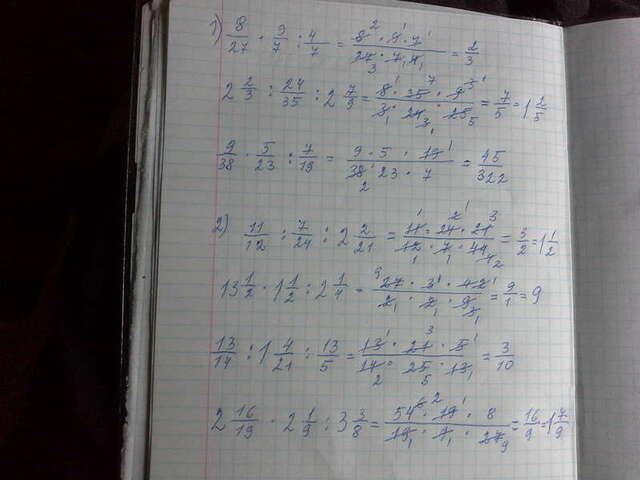 1) 8/27 · 9/7 : 4/7 = 8 · 9 · 7 / 27 · 7 · 4 = 2/3
2 2/3 : 24/35 : 2 7/9 = 8 · 35 · 9 / 3 · 24 · 25 = 7/5 = 1 2/5
9/38 · 5/23 : 7/19 = 9 · 5 · 19 / 38 · 23 · 7 = 45/322
2) 11/12 : 7/24 : 2 2/21 = 11 · 24 · 21 / 12 · 7 · 44 = 3/2 = 1 1/2
13 1/2 · 1 1/2 : 2 1/4 = 27 · 3 · 4 / 2 · 2 · 9 = 9/1 = 9
13/14 : 1 4/21 : 13/5 = 13 · 21 · 5 / 14 · 25 · 13 = 3/10
2 16/19 · 2 1/9 : 3 3/8 = 54 · 19 · 8 / 19 · 9 · 27 = 16/9 = 1 7/9